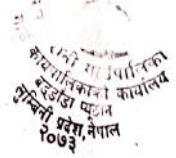 गाउँपालिका
कार्यपालिकाको कार्यालय
प्यूठान
लुम्बिनी प्रदेश, नेपाल
२०७३